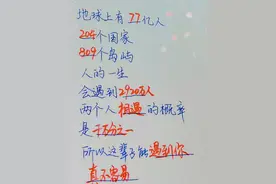 地球上有77亿人
204个国家
809个岛屿
人的一生
会遇到2920万人
两个人相遇的概率
是千万分之一
所以这辈子能遇到你
真不容易